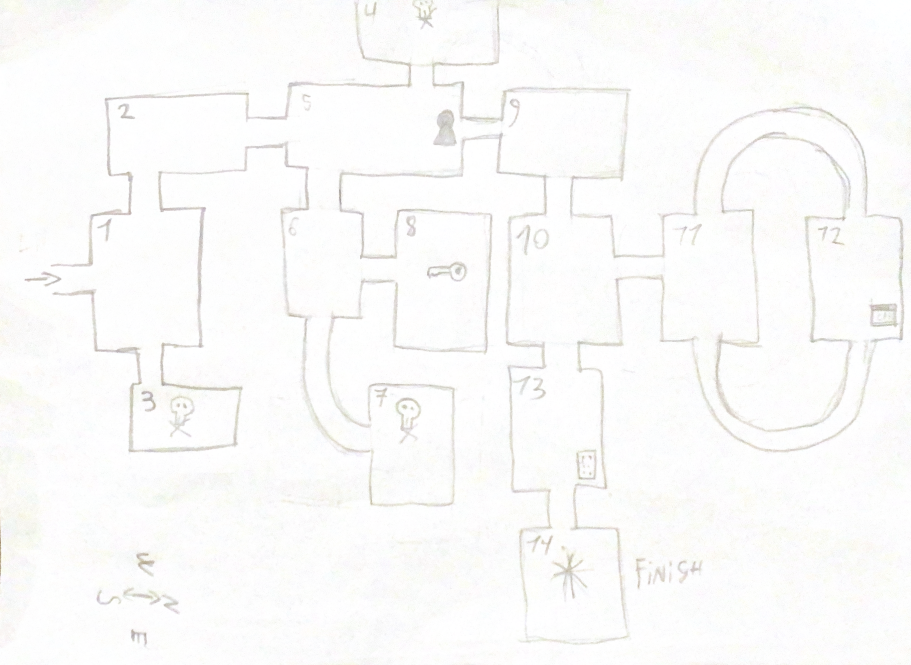 4
2
5
9
1
6
8
10
11
12
3
7
13
14
FINISH